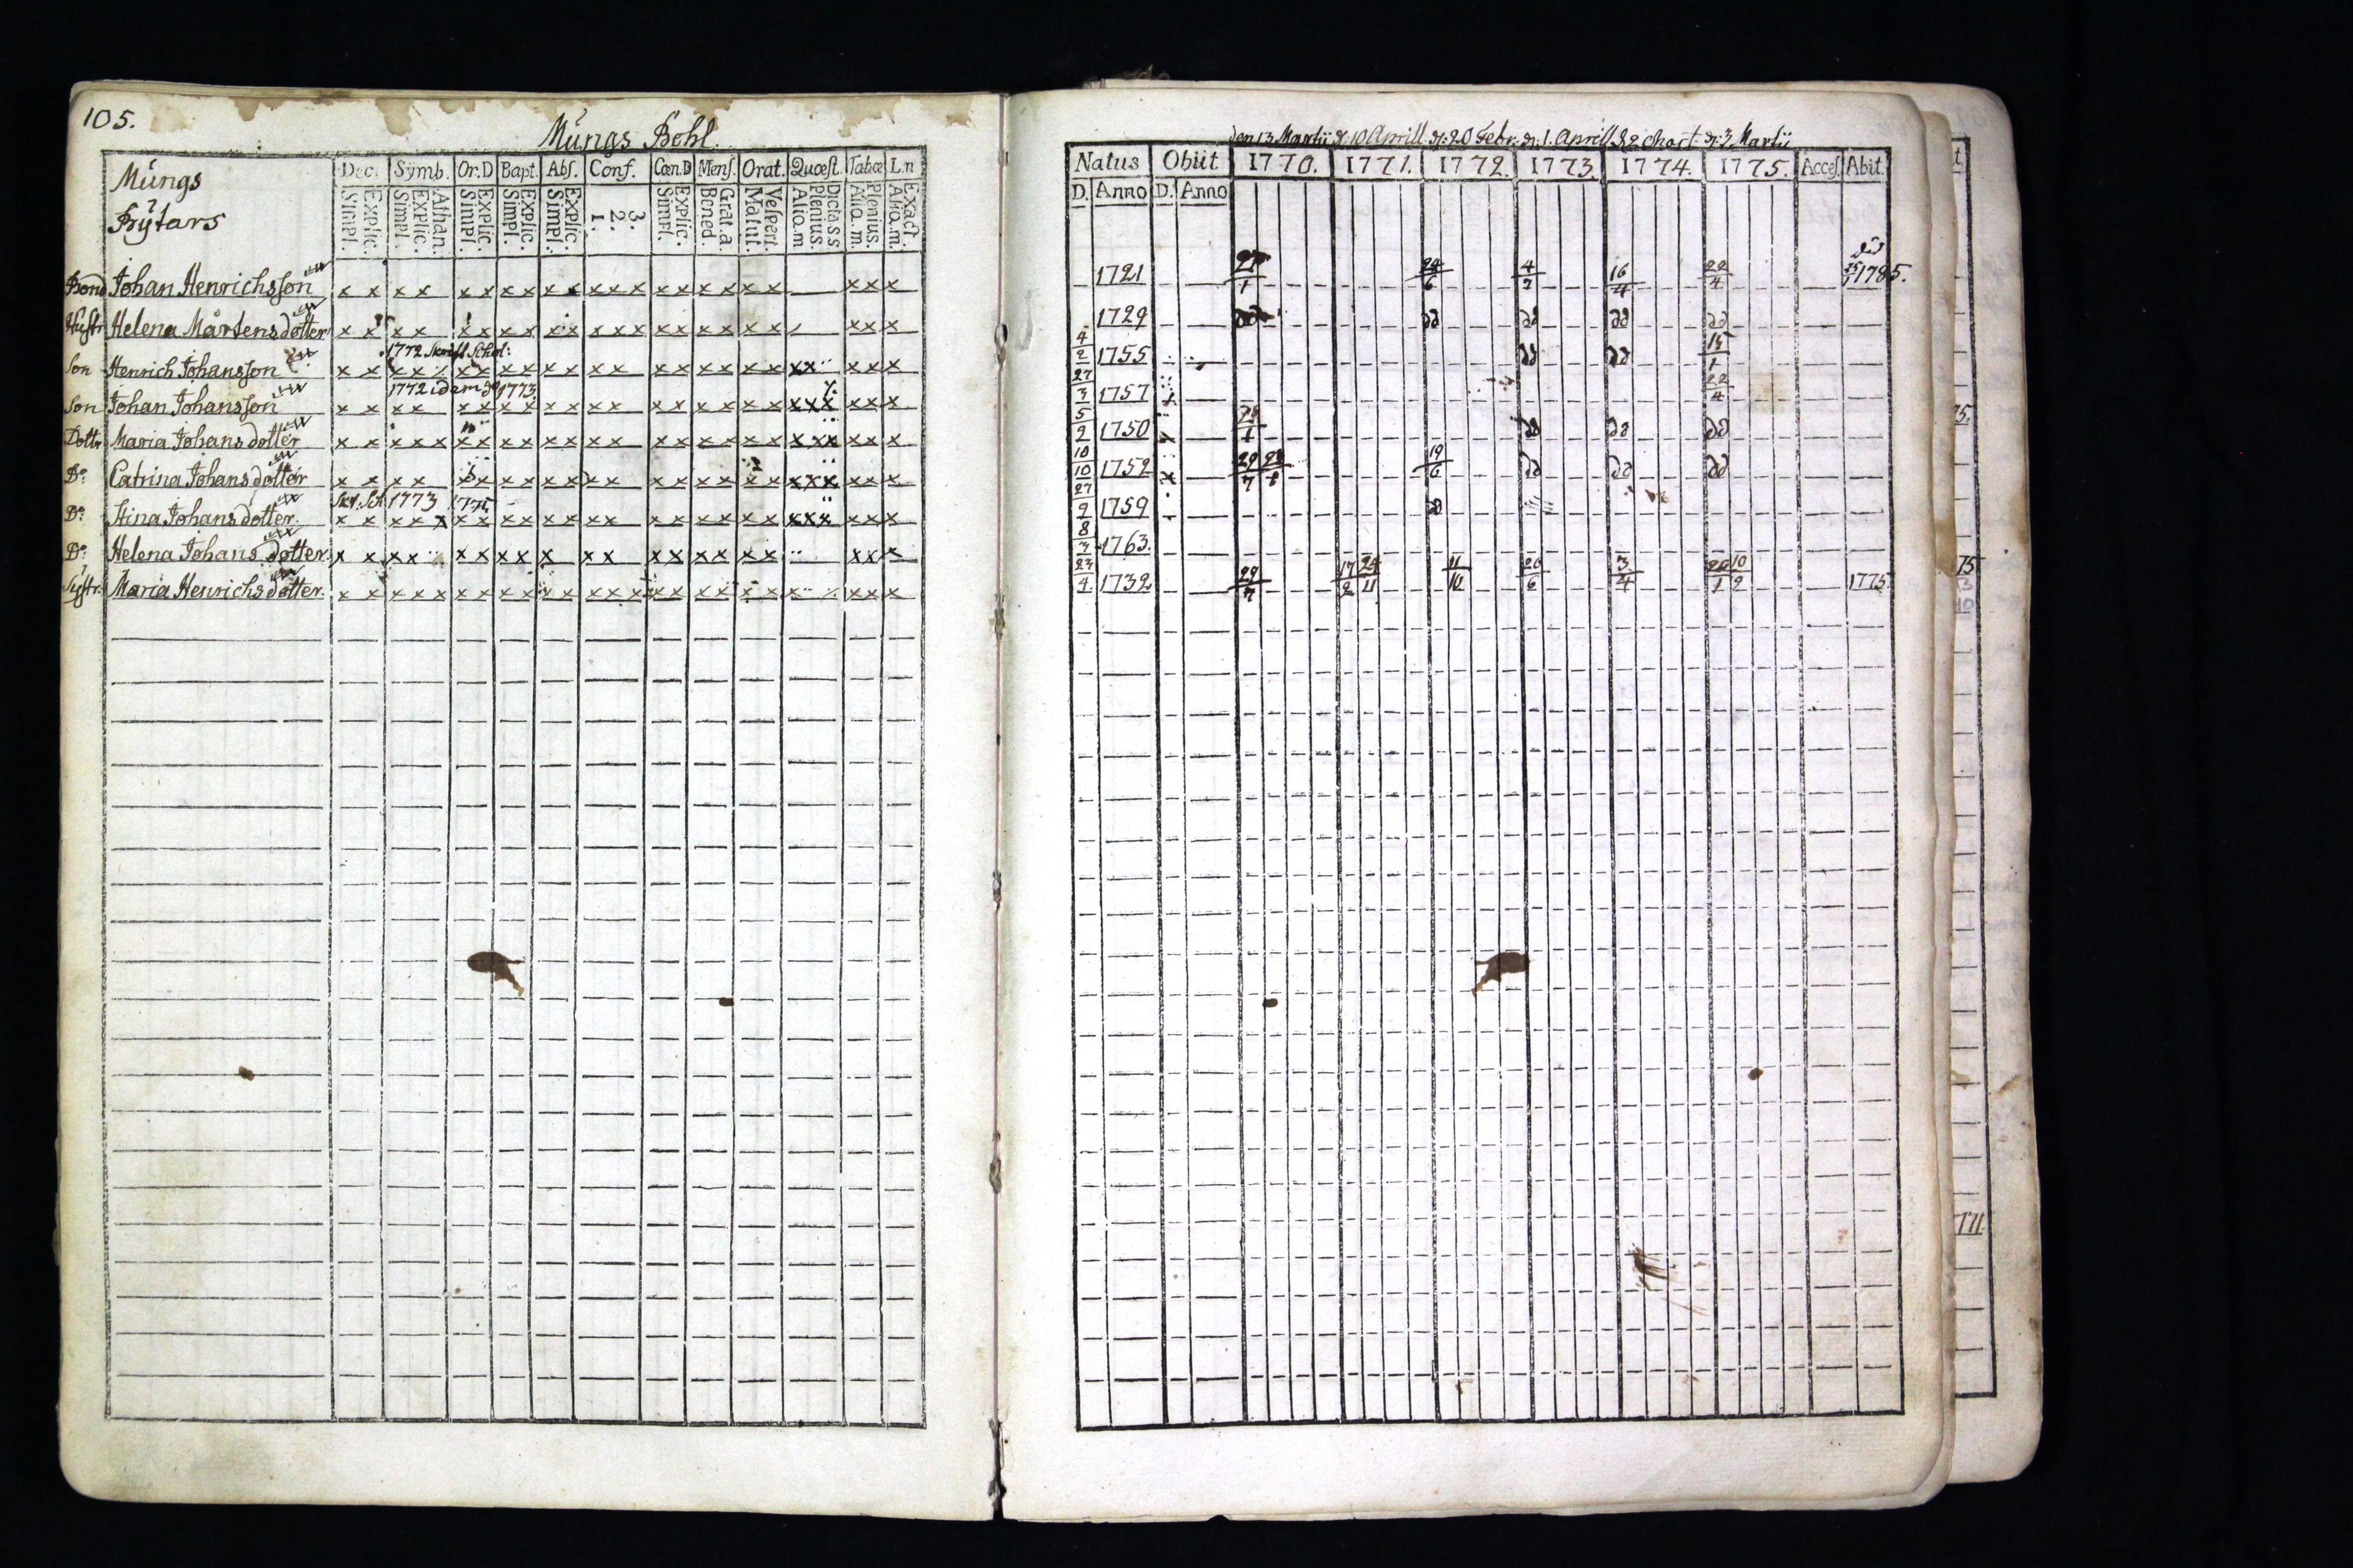 105.
Mungs Bohl.
Mungs
Prÿtars
Dec. Sÿmb. Or.D Bapt. Abs. Conf. Cœn.D Mens. Orat. Quæst. Tabcæ L.n
Simpl. Explic. Simpl. Explic. Athan. Simpl. Explic. Simpl. Explic. Simpl. Explic. 1. 2. 3. Simpl. Explic. Bened. Grat.a. Matut. Vespert. Alio.m. Plenius. Dicta s s. Alio.m. Plenius. Alio.m. Exact.
Bond Johan Henrichsson x x x x x x x x x x x x x x x x x x x x x x
Hustr Helena Mårtens dotter x x x x x x x x x x x x x x x x x x x x x x
1772 Skrift Schol:
Son Henrich Johansson x x x x x x x x x x x x x x x x x x x x x x x
1772 idem 1773
Son Johan Johansson x x x x x x x x x x x x x x x x x x x x x x x x
Dottr Maria Johans dotter x x x x x x x x x x x x x x x x x x x x x x x x x
D:o Catrina Johans dotter x x x x x x x x x x x x x x x x x x x x x x x x
Skr. Sch 1773 1775
D:o Stina Johans dotter. x x x x x x x x x x x x x x x x x x x x x x x x x
D:o Helena Johans dotter. x x x x x x x x x x x x x x x x x x x x
Systr. Maria Henrichs dotter. x x x x x x x x x x x x x x x x x x x x x x x x
den 13 Martii d: 10 Aprill d: 20 Febr. d: 1. Aprill d: 2 Mart. d: 3 Martii
Natus Obiit 1770. 1771. 1772. 1773. 1774. 1775. Acces. Abit.
D. Anno D. Anno
1721 27/1 24/6 4/7 16/4 22/4 1785.
1729 dd dd dd dd dd
4/2 1755 dd dd 15/1
27/3 1757 22/4
5/2 1750 28/1 dd dd dd
10/10 1752 29/7 28/1 19/6 dd dd dd
27/9 1759 dd
8/3 1763.
23/4 1732 29/7 17/2 24/11 11/10 20/6 3/4 22/1 10/2 1775